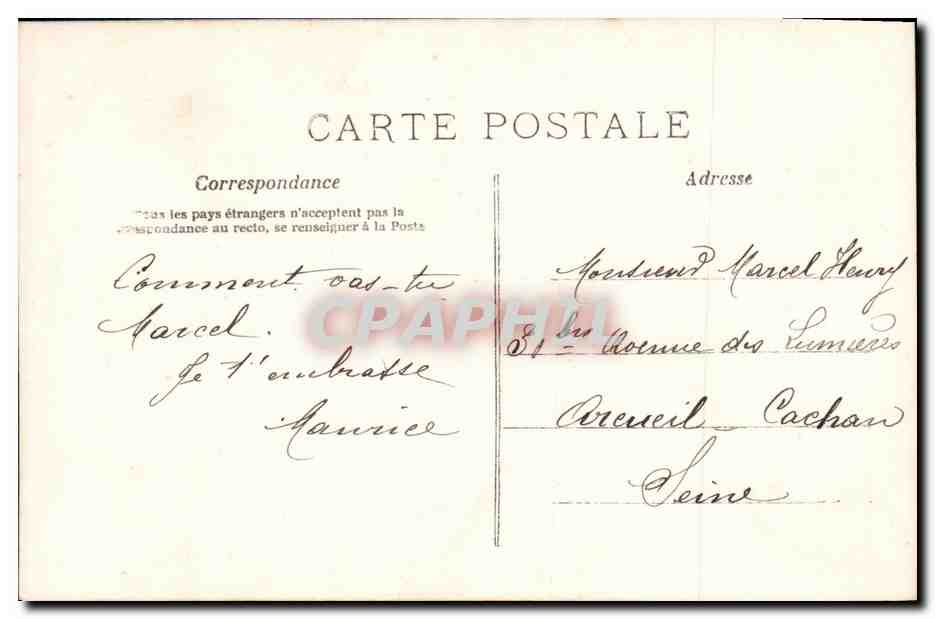 CARTE POSTALE
Correspondance
Tous les pays étrangers n'acceptent pas la
correspondance au recto, se renseigner à la Poste
Comment vas-tu
Marcel.
Je t'embrasse
Maurice
Adresse
Monsieur Marcel Henry
31 bis Avenue des Lumières
Arcueil - Cachan
Seine
CPAPHIL